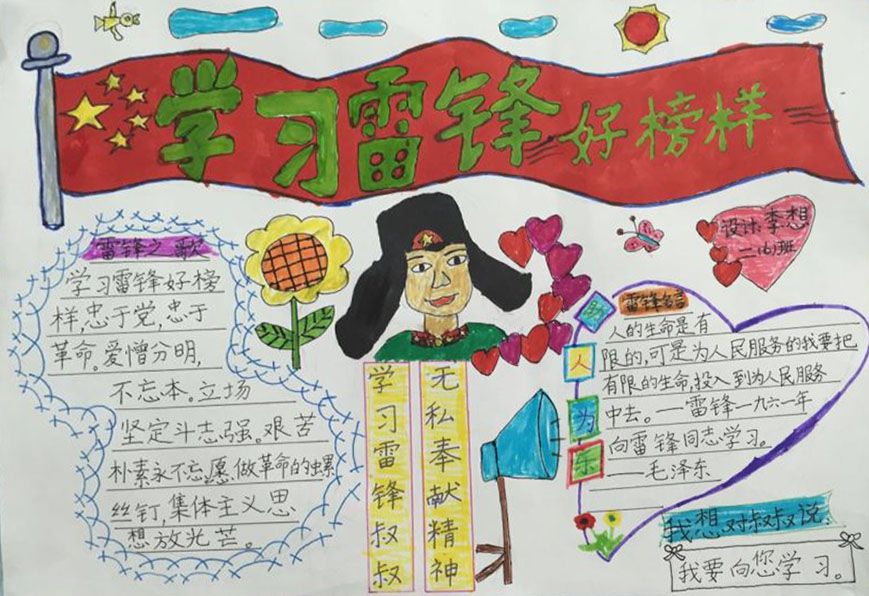 学习雷锋好榜样
设计:李想
二(6)班
雷锋之歌
学习雷锋好榜
样,忠于党,忠于
革命。爱憎分明,
不忘本。立场
坚定斗志强。艰苦
朴素永不忘愿做革命的螺
丝钉,集体主义思
想放光芒。
学习雷锋叔叔
无私奉献精神
助人为乐
雷锋名言
人的生命是有
限的,可是为人民服务的我要把
有限的生命,投入到为人民服务
中去。——雷锋一九六一年
向雷锋同志学习。
——毛泽东
我想对叔叔说:
我要向您学习。